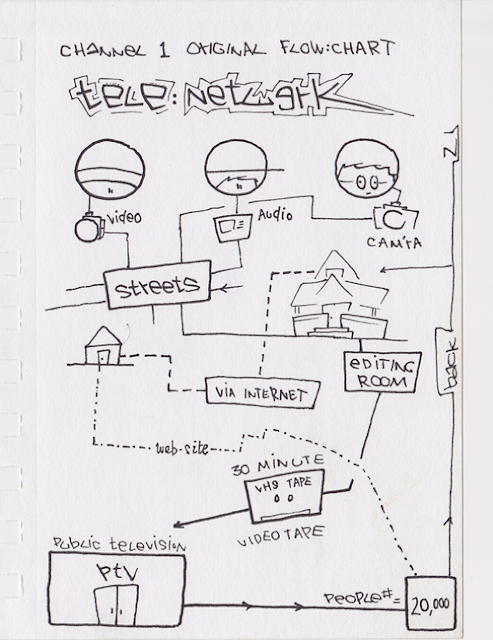 CHANNEL 1 ORIGINAL FLOW:CHART
tele:NetWorK
Video
Audio
CAM'RA
streets
VIA INTERNET
eDITING
ROOM
back
web-site
30 MINUTE
VHS TAPE
VIDEO TAPE
Public television
PtV
PeOPLe#=
20,000